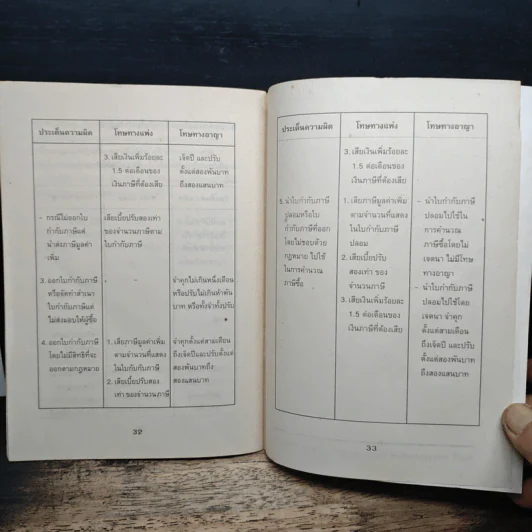 ประเด็นความผิด
โทษทางแพ่ง
โทษทางอาญา
3. เสียเงินเพิ่มร้อยละ
1.5 ต่อเดือนของ
เงินภาษีที่ต้องเสีย
เจ็ดปี และปรับ
ตั้งแต่สองพันบาท
ถึงสองแสนบาท
– กรณีไม่ออกใบ
กำกับภาษีแต่
นำส่งภาษีมูลค่า
เพิ่ม
เสียเบี้ยปรับสองเท่า
ของจำนวนภาษีตาม
ใบกำกับภาษี
3. ออกใบกำกับภาษี
หรือจัดทำสำเนา
ใบกำกับภาษีแต่
ไม่ส่งมอบให้ผู้ซื้อ
จำคุกไม่เกินหนึ่งเดือน
หรือปรับไม่เกินห้าพัน
บาท หรือทั้งจำทั้งปรับ
4. ออกใบกำกับภาษี
โดยไม่มีสิทธิที่จะ
ออกตามกฎหมาย
1. เสียภาษีมูลค่าเพิ่ม
ตามจำนวนที่แสดง
ในใบกำกับภาษี
2. เสียเบี้ยปรับสอง
เท่า ของจำนวนภาษี
จำคุกตั้งแต่สามเดือน
ถึงเจ็ดปีและปรับตั้งแต่
สองพันบาทถึง
สองแสนบาท
32
ประเด็นความผิด
โทษทางแพ่ง
โทษทางอาญา
3. เสียเงินเพิ่มร้อยละ
1.5 ต่อเดือนของ
เงินภาษีที่ต้องเสีย
5. นำใบกำกับภาษี
ปลอมหรือใบ
กำกับภาษีที่ออก
โดยไม่ชอบด้วย
กฎหมาย ไปใช้
ในการคำนวณ
ภาษีซื้อ
1. เสียภาษีมูลค่าเพิ่ม
ตามจำนวนที่แสดง
ในใบกำกับภาษี
ปลอม
2. เสียเบี้ยปรับสอง
เท่า ของ
จำนวนภาษี
3. เสียเงินเพิ่มร้อยละ
1.5 ต่อเดือนของ
เงินภาษีที่ต้องเสีย
– นำใบกำกับภาษี
ปลอมไปใช้ใน
การคำนวณ
ภาษีซื้อโดยไม่
เจตนา ไม่มีโทษ
ทางอาญา
– นำใบกำกับภาษี
ปลอมไปใช้โดย
เจตนา จำคุก
ตั้งแต่สามเดือน
ถึงเจ็ดปี และปรับ
ตั้งแต่สองพันบาท
ถึงสองแสนบาท
33